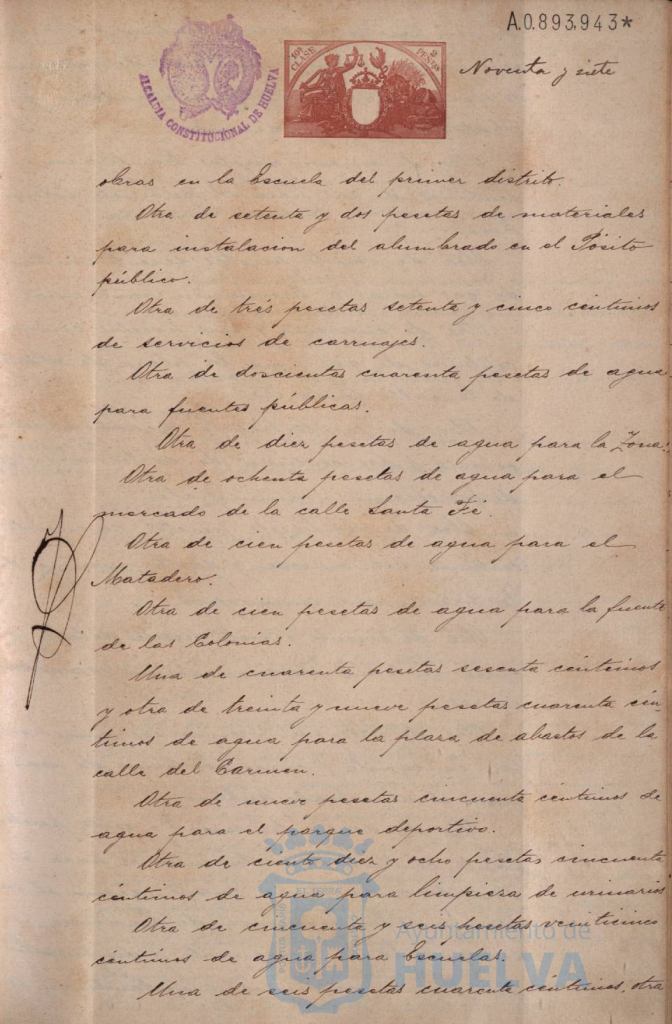 A.0.893,943*
ALCALDIA CONSTITUCIONAL DE HUELVA
10ª CLASE 2 PESETAS
Noventa y siete
obras en la Escuela del primer distrito.
Otra de setenta y dos pesetas de materiales
para instalacion del alumbrado en el Pósito
público.
Otra de trés pesetas setenta y cinco céntimos
de servicios de carruajes.
Otra de doscientas cuarenta pesetas de agua
para fuentes públicas.
Otra de diez pesetas de agua para la Zona.
Otra de ochenta pesetas de agua para el
mercado de la calle Santa Fé.
Otra de cien pesetas de agua para el
Matadero.
Otra de cien pesetas de agua para la fuente
de las Colonias.
Una de cuarenta pesetas sesenta céntimos
y otra de treinta y nueve pesetas cuarenta cén-
timos de agua para la plaza de abastos de la
calle del Carmen.
Otra de nueve pesetas cincuenta céntimos de
agua para el parque deportivo.
Otra de ciento diez y ocho pesetas cincuenta
céntimos de agua para limpieza de urinarios
Otra de cincuenta y seis pesetas veinticinco
céntimos de agua para Escuelas.
Una de seis pesetas cuarenta céntimos, otra
Ayuntamiento de
HUELVA